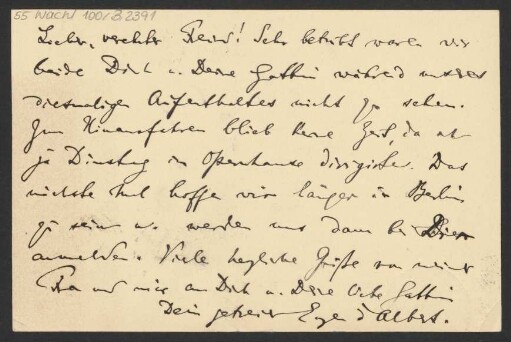 55 Nachl 100/B,2391
Lieber, verehrter Freund! Sehr betrübt waren wir
beide Dich u. Deine Gattin während unseres
diesmaligen Aufenthaltes nicht zu sehen.
Zum Hinausfahren blieb keine Zeit, da ich
ja Dienstag im Opernhause dirigirte. Das
nächste Mal hoffen wir länger in Berlin
zu sein u. werden uns dann bei Dir
anmelden. Viele herzliche Grüße von meiner
Frau und mir an Dich u. Deine liebe Gattin
Dein getreuer Eugen d'Albert.